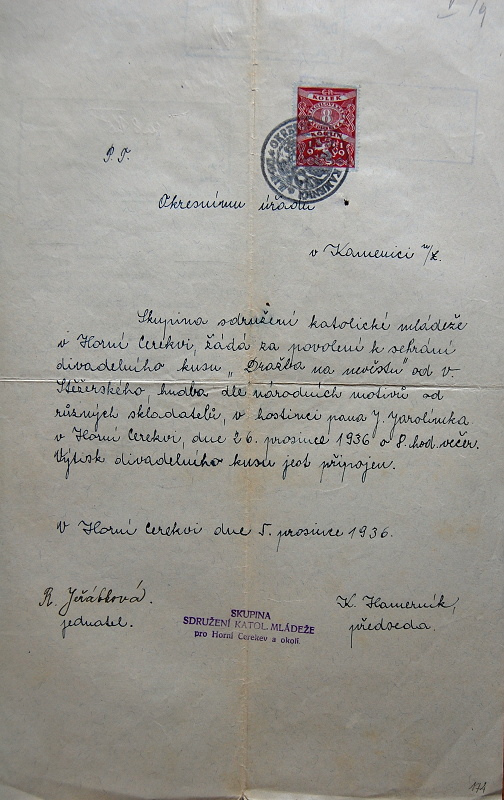 P. T.
KOLEK
8
KORUN
1919
KAMENICI
Okresnímu úřadu
v Kamenici n/L.
Skupina sdružení katolické mládeže
v Horní Cerekvi, žádá za povolení k sehrání
divadelního kusu „Dražba na nevěstu" od v.
Stěžerského, hudba dle národních motivů od
různých skladatelů, v hostinci pana J. Jarolímka
v Horní Cerekvi, dne 26. prosince 1936 o 8. hod. večer.
Výtisk divadelního kusu jest připojen.
V Horní Cerekvi dne 5. prosince 1936.
R. Jeřábková.
jednatel.
SKUPINA
SDRUŽENÍ KATOL. MLÁDEŽE
pro Horní Cerekev a okolí.
K. Hamerník,
předseda.
174